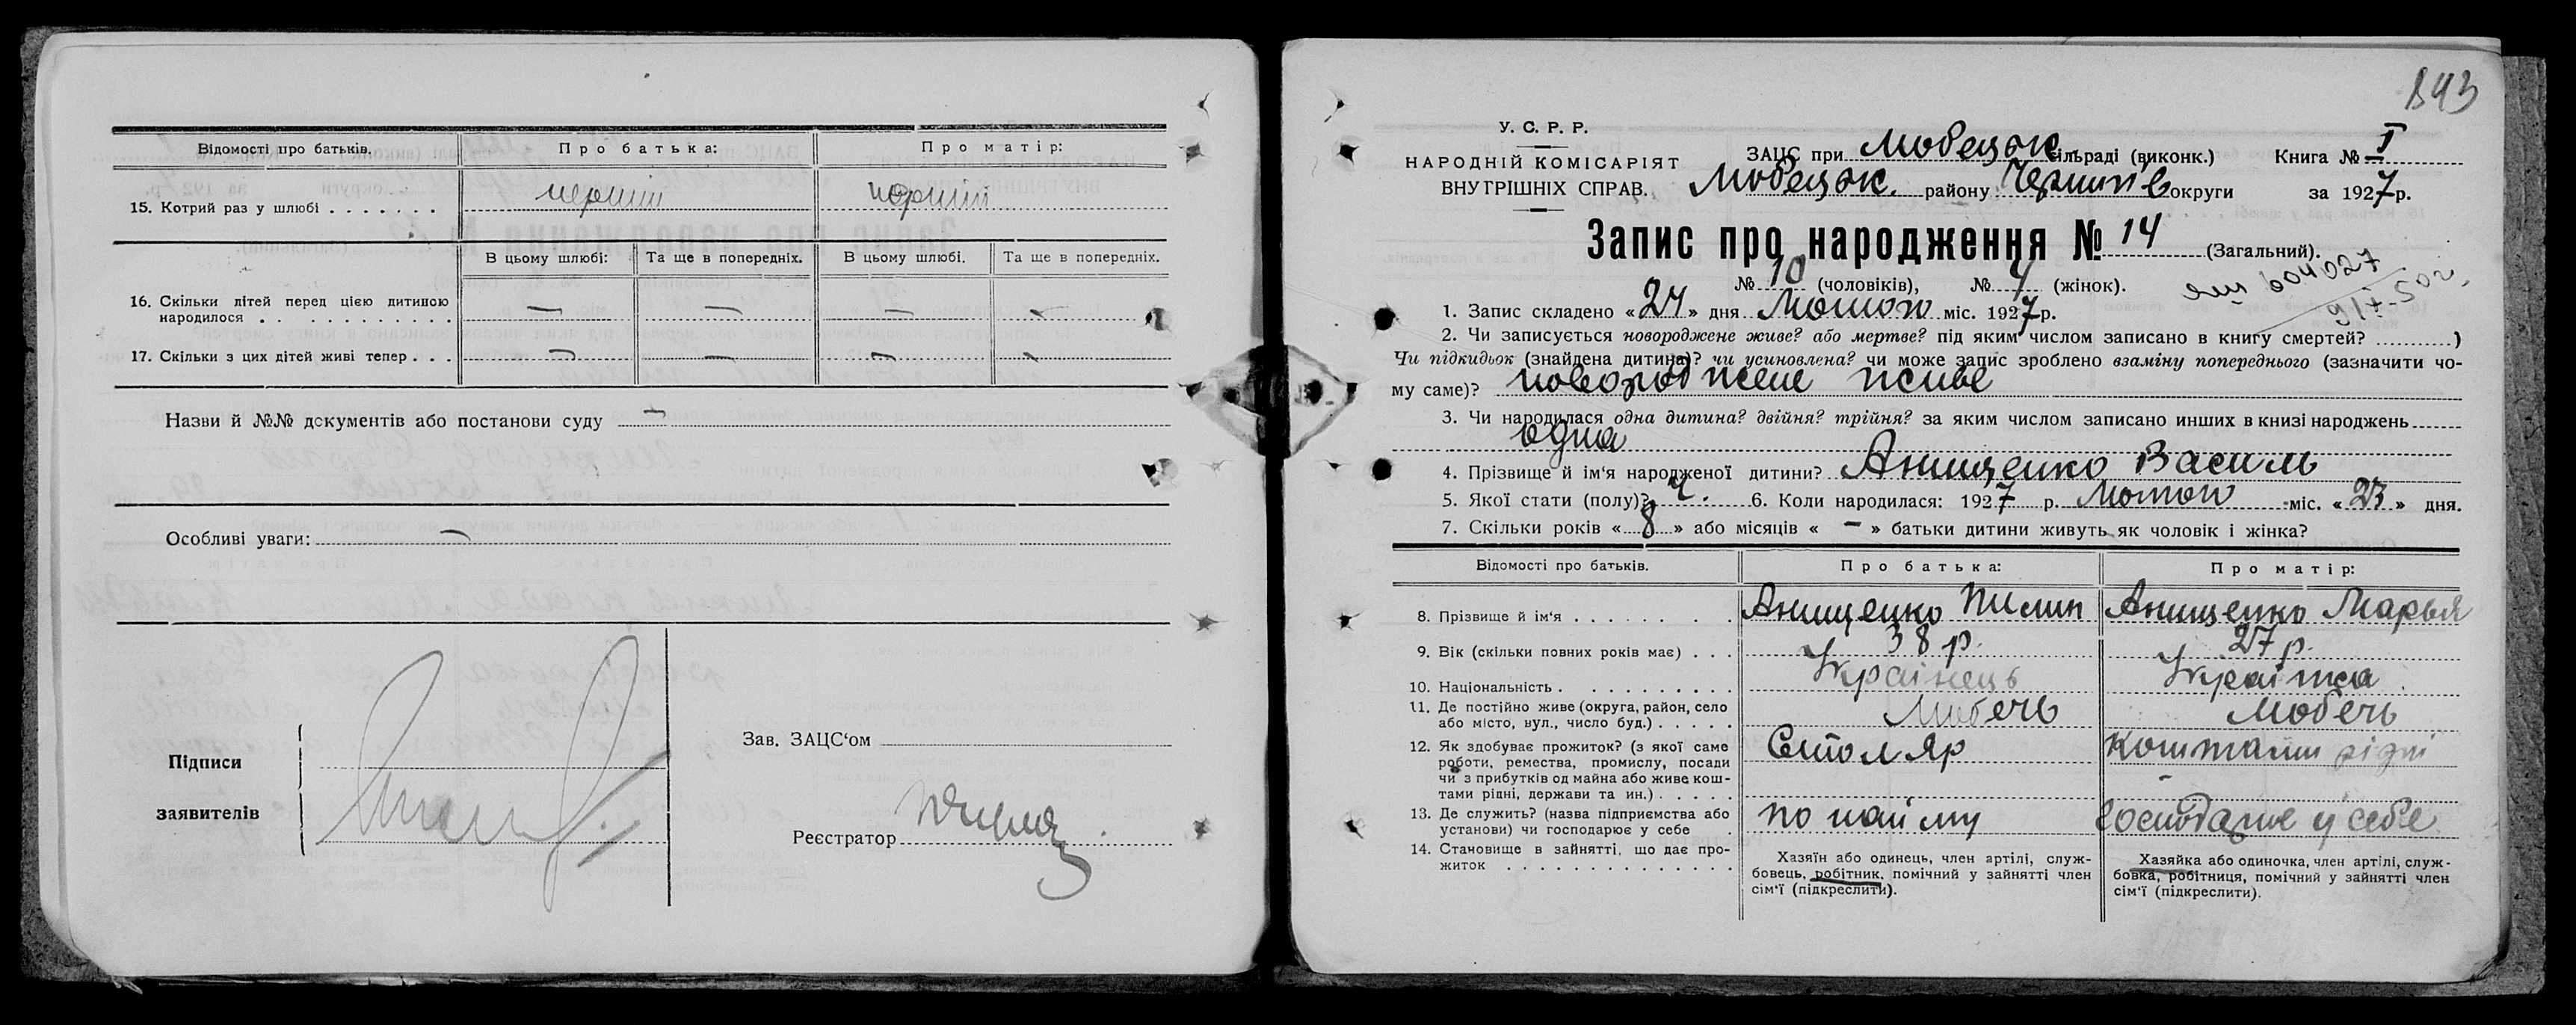 Відомості про батьків. Про батька: Про матір:
15. Котрий раз у шлюбі . . . . . . . перший перший
В цьому шлюбі: Та ще в попередніх. В цьому шлюбі. Та ще в попередніх.
16. Скільки дітей перед цією дитиною — — — —
народилося . . . . . . . . . . . .
17. Скільки з цих дітей живі тепер . . . — — — —
Назви й №№ документів або постанови суду —
Особливі уваги: —
Підписи
заявителів
Зав. ЗАЦС‘ом
Реєстратор
843
У. С. Р. Р.
НАРОДНІЙ КОМІСАРІЯТ
ВНУТРІШНІХ СПРАВ.
ЗАЦС при Любецьк. сільраді (виконк.) Книга № I
Любецьк. району Чернигів округи за 1927 р.
Запис про народження № 14 (Загальний).
№ 10 (чоловіків), № 4 (жінок).
604027
1. Запис складено «24» дня Лютого міс. 1927 р.
2. Чи записується новороджене живе? або мертве? під яким числом записано в книгу смертей? ..........)
Чи підкидьок (знайдена дитина)? чи усиновлена? чи може запис зроблено взаміну попереднього (зазначити чо-
му саме)? новороджене живе
3. Чи народилася одна дитина? двійня? трійня? за яким числом записано инших в книзі народжень
одна
4. Прізвище й ім‘я народженої дитини? Анищенко Василь
5. Якої стати (полу)? ч. 6. Коли народилася: 1927 р. Лютого міс. «23» дня.
7. Скільки років «8» або місяців « — » батьки дитини живуть як чоловік і жінка?
Відомості про батьків. Про батька: Про матір:
8. Прізвище й ім‘я . . . . . . . . Анищенко Пилип Анищенко Марья
9. Вік (скільки повних років має) . . . 38 р. 27 р.
10. Національність . . . . . . . . . . Українець Українка
11. Де постійно живе (округа, район, село
або місто, вул., число буд.) . . . . . Любечь Любечь
12. Як здобуває прожиток? (з якої саме
роботи, ремества, промислу, посади
чи з прибутків од майна або живе кош-
тами рідні, держави та ин.) . . . . . Столяр коштами рідні
13. Де служить? (назва підприємства або
установи) чи господарює у себе . по найму господарює у себе
14. Становище в зайнятті, що дає про-
житок . . . . . . . . . . . . . .
Хазяїн або одинець, член артілі, служ-
бовець, робітник, помічний у зайнятті член
сім‘ї (підкреслити).
Хазяйка або одиночка, член артілі, служ-
бовка, робітниця, помічний у зайнятті член
сім‘ї (підкреслити).